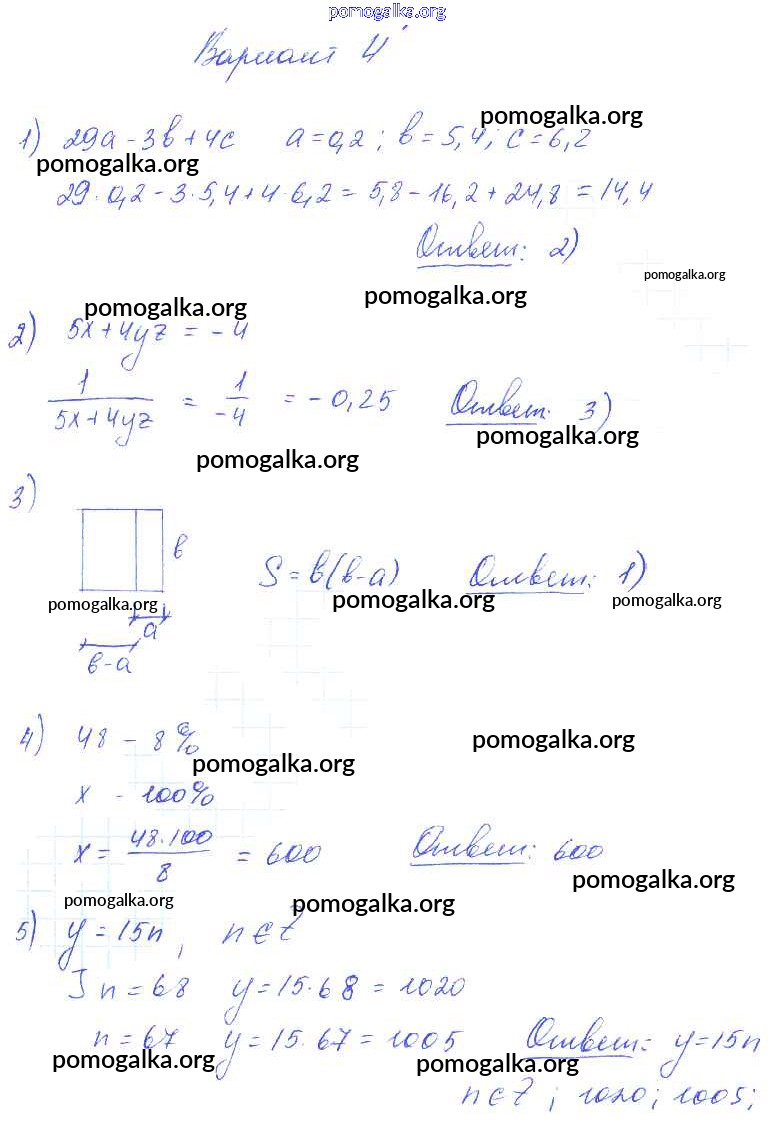 pomogalka.org
Вариант 4
pomogalka.org
1) 29a - 3b + 4c a = 0,2 ; b = 5,4 ; c = 6,2
pomogalka.org
29 · 0,2 - 3 · 5,4 + 4 · 6,2 = 5,8 - 16,2 + 24,8 = 14,4
Ответ: 2)
pomogalka.org
pomogalka.org
pomogalka.org
2) 5x + 4yz = - 4
1/(5x + 4yz) = 1/-4 = - 0,25 Ответ: 3)
pomogalka.org
pomogalka.org
3)
b
S = b(b-a) Ответ: 1)
pomogalka.org
pomogalka.org
pomogalka.org
a
b-a
4) 48 - 8%
pomogalka.org
pomogalka.org
x - 100%
x = 48·100/8 = 600 Ответ: 600
pomogalka.org
pomogalka.org
pomogalka.org
5) y = 15n, n∈Z
] n = 68 y = 15·68 = 1020
n = 67 y = 15·67 = 1005 Ответ: y = 15n
pomogalka.org
pomogalka.org
n∈Z ; 1020 ; 1005 ;